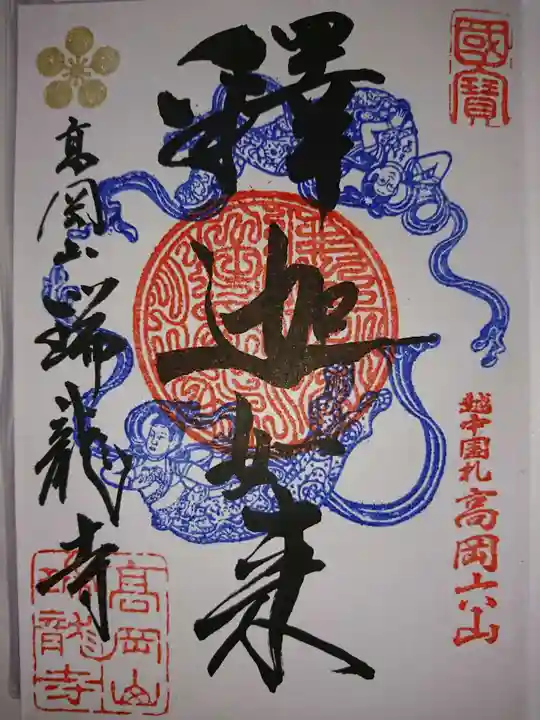 國寶
越中国札高岡山
釋迦如来
高岡山瑞龍寺
高岡山
瑞龍寺